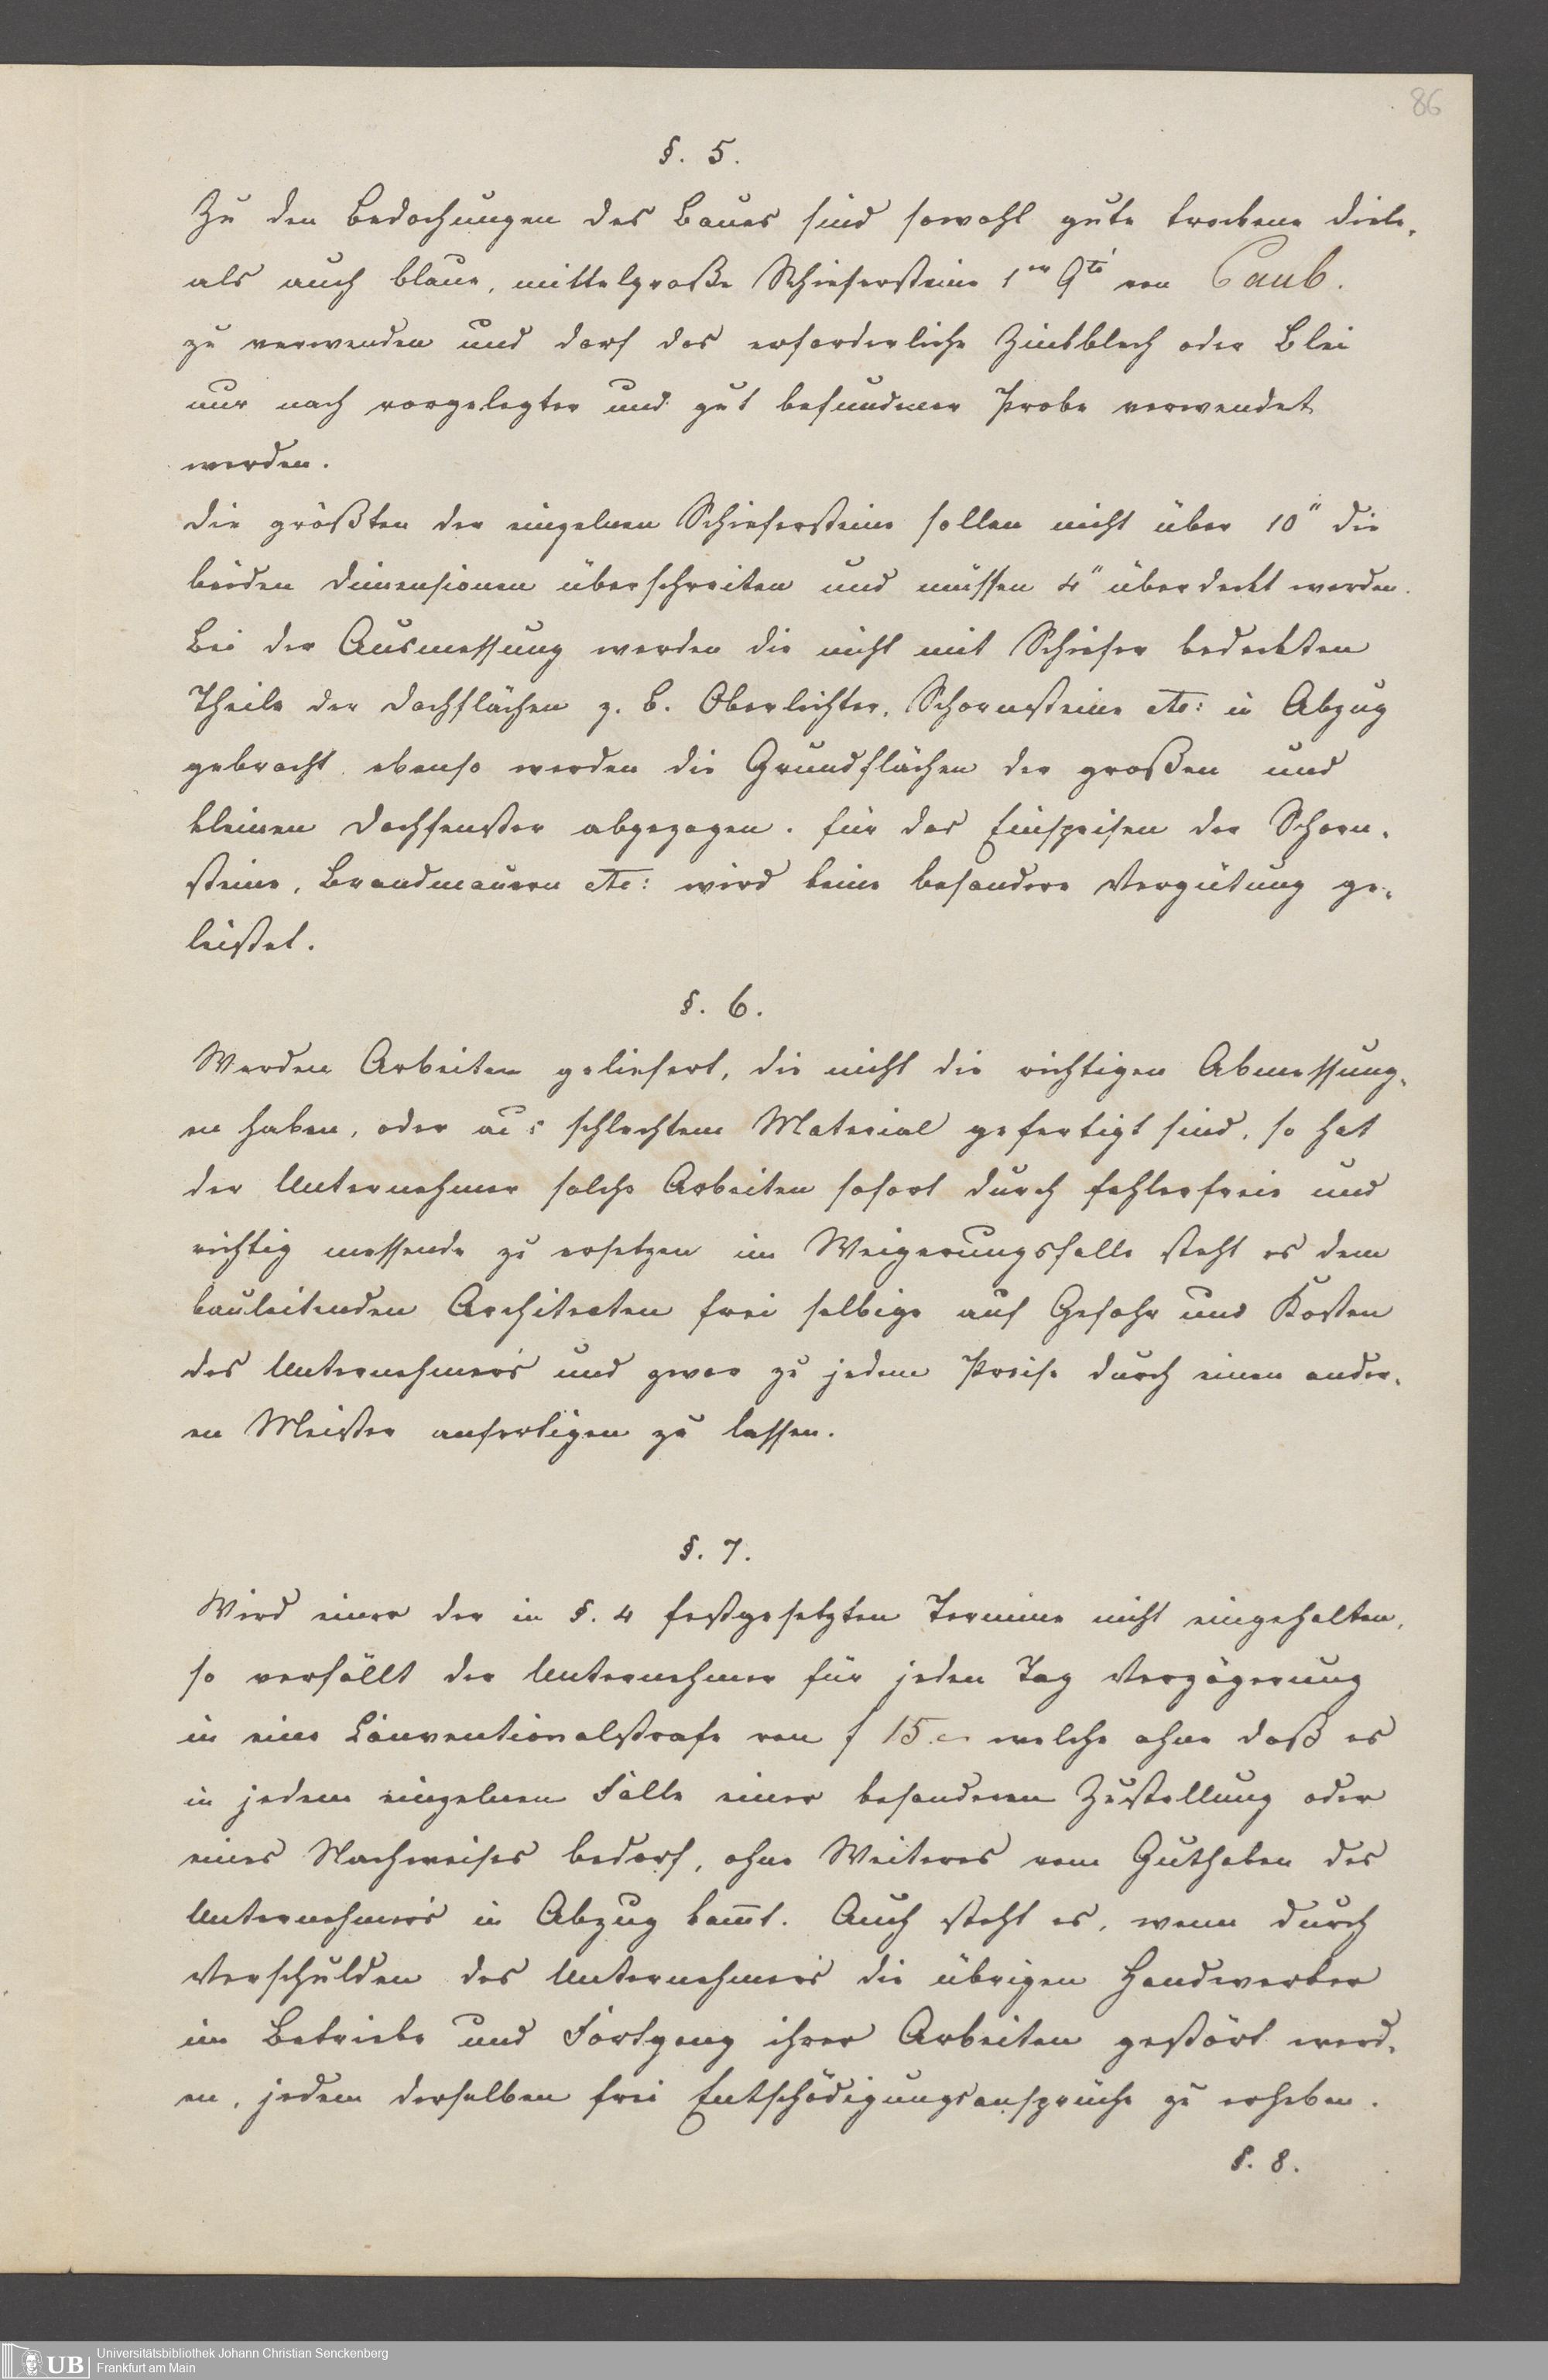 86
§. 5.
Zu den Bedachungen des Baues sind sowohl gute trockene Diele,
als auch blaue, mittelgroße Schiefersteine 1er Qté von Caub.
zu verwenden und darf das erforderliche Zinkblech oder Blei
nur nach vorgelegter und gut befundener Probe verwendet
werden.
Die größten der einzelnen Schiefersteine sollen nicht über 10" die
beiden Dimensionen überschreiten und müssen 4" überdeckt werden.
Bei der Ausmessung werden die nicht mit Schiefer bedeckten
Theile der Dachflächen z. B. Oberlichter, Schornsteine etc: in Abzug
gebracht ebenso werden die Grundflächen der großen und
kleinen Dachfenster abgezogen. Für das Einspeisen der Schorn-
steine, Brandmauern etc: wird keine besondere Vergütung ge-
leistet.
§. 6.
Werden Arbeiten geliefert, die nicht die richtigen Abmessung-
en haben, oder aus schlechtem Material gefertigt sind, so hat
der Unternehmer solche Arbeiten sofort durch fehlerfreie und
richtig messende zu ersetzen im Weigerungsfalle steht es dem
bauleitenden Architecten frei selbige auf Gefahr und Kosten
des Unternehmers und zwar zu jedem Preise durch einen ander-
en Meister anfertigen zu lassen.
§. 7.
Wird einer der in §. 4 festgesetzten Termine nicht eingehalten,
so verfällt der Unternehmer für jeden Tag Verzögerung
in eine Conventionalstrafe von f 15 welche ohne daß es
in jedem einzelnen Falle einer besonderen Zustellung oder
eines Nachweises bedarf, ohne Weiteres vom Guthaben des
Unternehmers in Abzug kom̅t. Auch steht es, wenn durch
Verschulden des Unternehmers die übrigen Handwerker
im Betriebe und Fortgang ihrer Arbeiten gestört werd-
en, jedem derselben frei Entschädigungsansprüche zu erheben.
§. 8.
UB Universitätsbibliothek Johann Christian Senckenberg
Frankfurt am Main